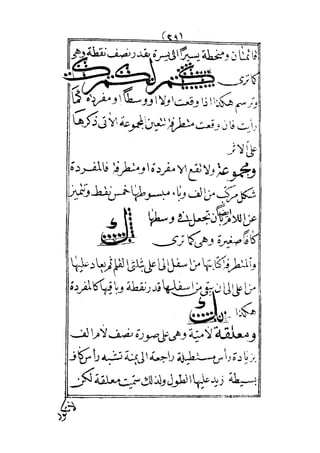 (٢٩)
فائمتان ومنحطة يسيرا الى يسرة بقدر نصف نقطة وهى
كما ترى
وترسم هكذا اذا وقعت اولا او وسطا او مفردة كما
رأيت فان وقعت متطرفة تتعين المجموعة الآتى ذكرها
على الاثر
ومجموعة ولا تقع الا مفردة او متطرفة فالمفردة
شكل مركب من الف وباء مبسوطها خمس نقط وتتميز
عن اللام بان تجعل فى وسطها
كافا صغيرة وهى كما ترى ك
والمتطرفة كتابتها من اسفل الى على ثلثى القلم ثم يعاد عليها
من اعلى الى ان يبقى من اسفلها قدر نقطة وباقيها كالمفردة
هكذا
ومعلقة لامية وهى على صورة نصف لام الف
بزيادة رأس مستطيلة راجعة الى يمنة تشبه رأس كاف
بسيطة زيد عليها الطول ولذلك سميت معلقة لكن